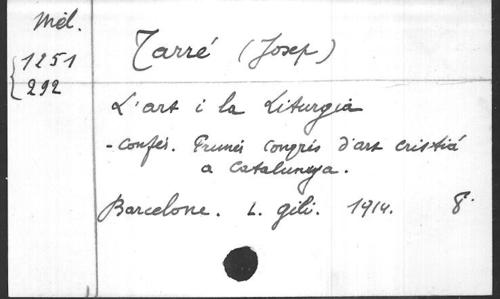 Mél.
1251
292
Tarré (Josep)
L'art i la Liturgia
- Confer. Primer Congrés d'art cristiá
a Catalunya.
Barcelone. L. gili. 1914. 8°.